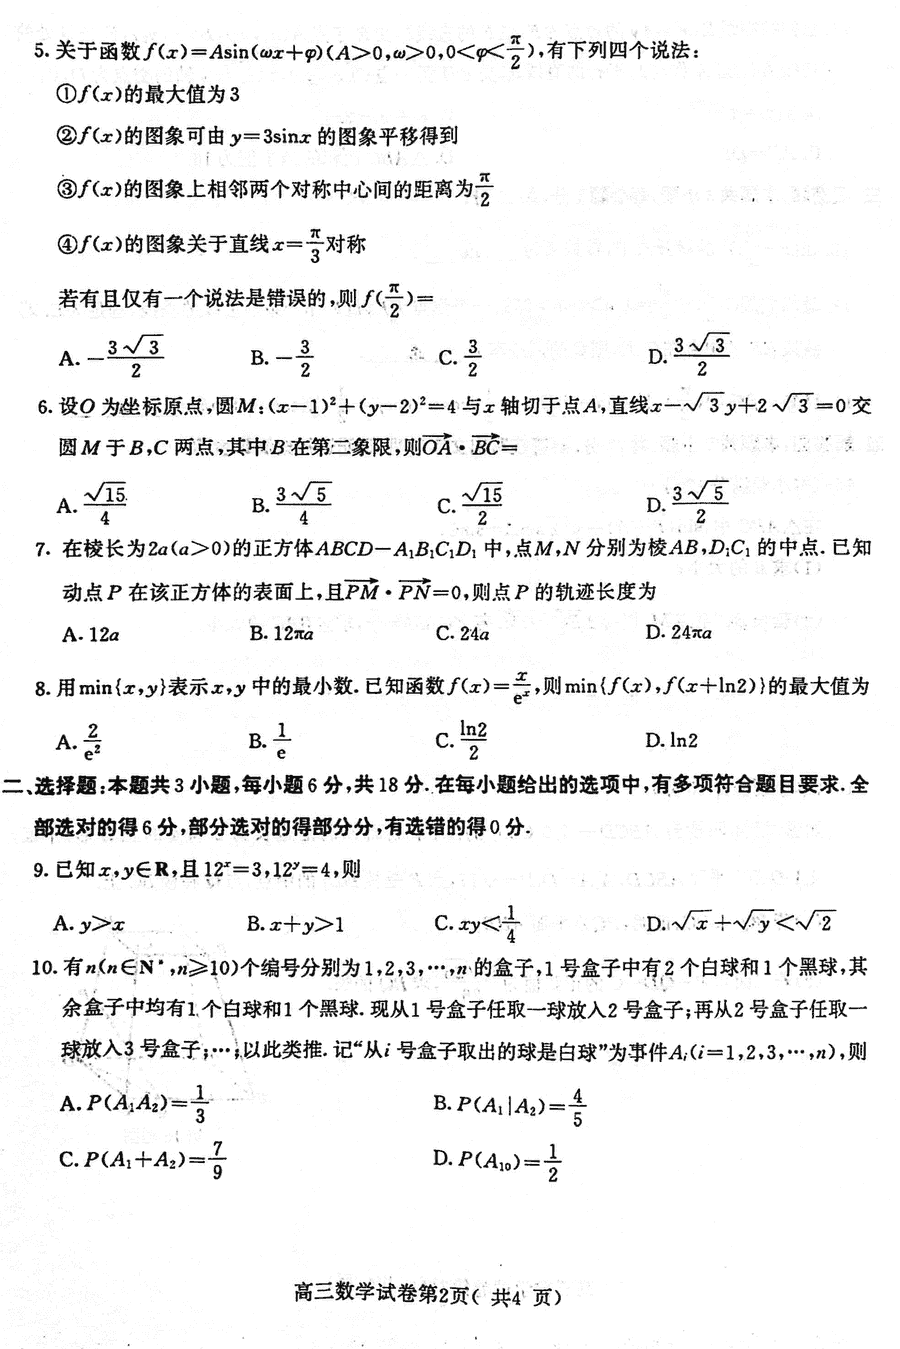 5. 关于函数 f(x)=Asin(ωx+φ)(A>0,ω>0,0<φ<π/2),有下列四个说法:
①f(x)的最大值为3
②f(x)的图象可由 y=3sinx 的图象平移得到
③f(x)的图象上相邻两个对称中心间的距离为π/2
④f(x)的图象关于直线x=π/3对称
若有且仅有一个说法是错误的,则 f(π/2)=
A. -3√3/2 B. -3/2 C. 3/2 D. 3√3/2
6. 设O 为坐标原点,圆M:(x-1)²+(y-2)²=4 与x 轴切于点A,直线x-√3y+2√3=0交
圆M 于B,C 两点,其中B 在第二象限,则OA→·BC→=
A. √15/4 B. 3√5/4 C. √15/2 D. 3√5/2
7. 在棱长为2a(a>0)的正方体ABCD-A₁B₁C₁D₁ 中,点M,N 分别为棱AB,D₁C₁ 的中点. 已知
动点P 在该正方体的表面上,且PM→·PN→=0,则点P 的轨迹长度为
A. 12a B. 12πa C. 24a D. 24πa
8. 用min{x,y}表示x,y 中的最小数. 已知函数 f(x)=x/eˣ,则min{f(x),f(x+ln2)}的最大值为
A. 2/e² B. 1/e C. ln2/2 D. ln2
二、选择题:本题共 3 小题,每小题 6 分,共 18 分. 在每小题给出的选项中,有多项符合题目要求. 全
部选对的得 6 分,部分选对的得部分分,有选错的得 0 分.
9. 已知x,y∈R,且12ˣ=3,12ʸ=4,则
A. y>x B. x+y>1 C. xy<1/4 D. √x+√y<√2
10. 有n(n∈N*,n⩾10)个编号分别为1,2,3,…,n 的盒子,1 号盒子中有 2 个白球和 1 个黑球,其
余盒子中均有1 个白球和1 个黑球. 现从1 号盒子任取一球放入2 号盒子;再从2 号盒子任取一
球放入3 号盒子;…;以此类推. 记“从i 号盒子取出的球是白球”为事件Aᵢ(i=1,2,3,…,n),则
A. P(A₁A₂)=1/3 B. P(A₁|A₂)=4/5
C. P(A₁+A₂)=7/9 D. P(A₁₀)=1/2
高三数学试卷第2页( 共4 页)